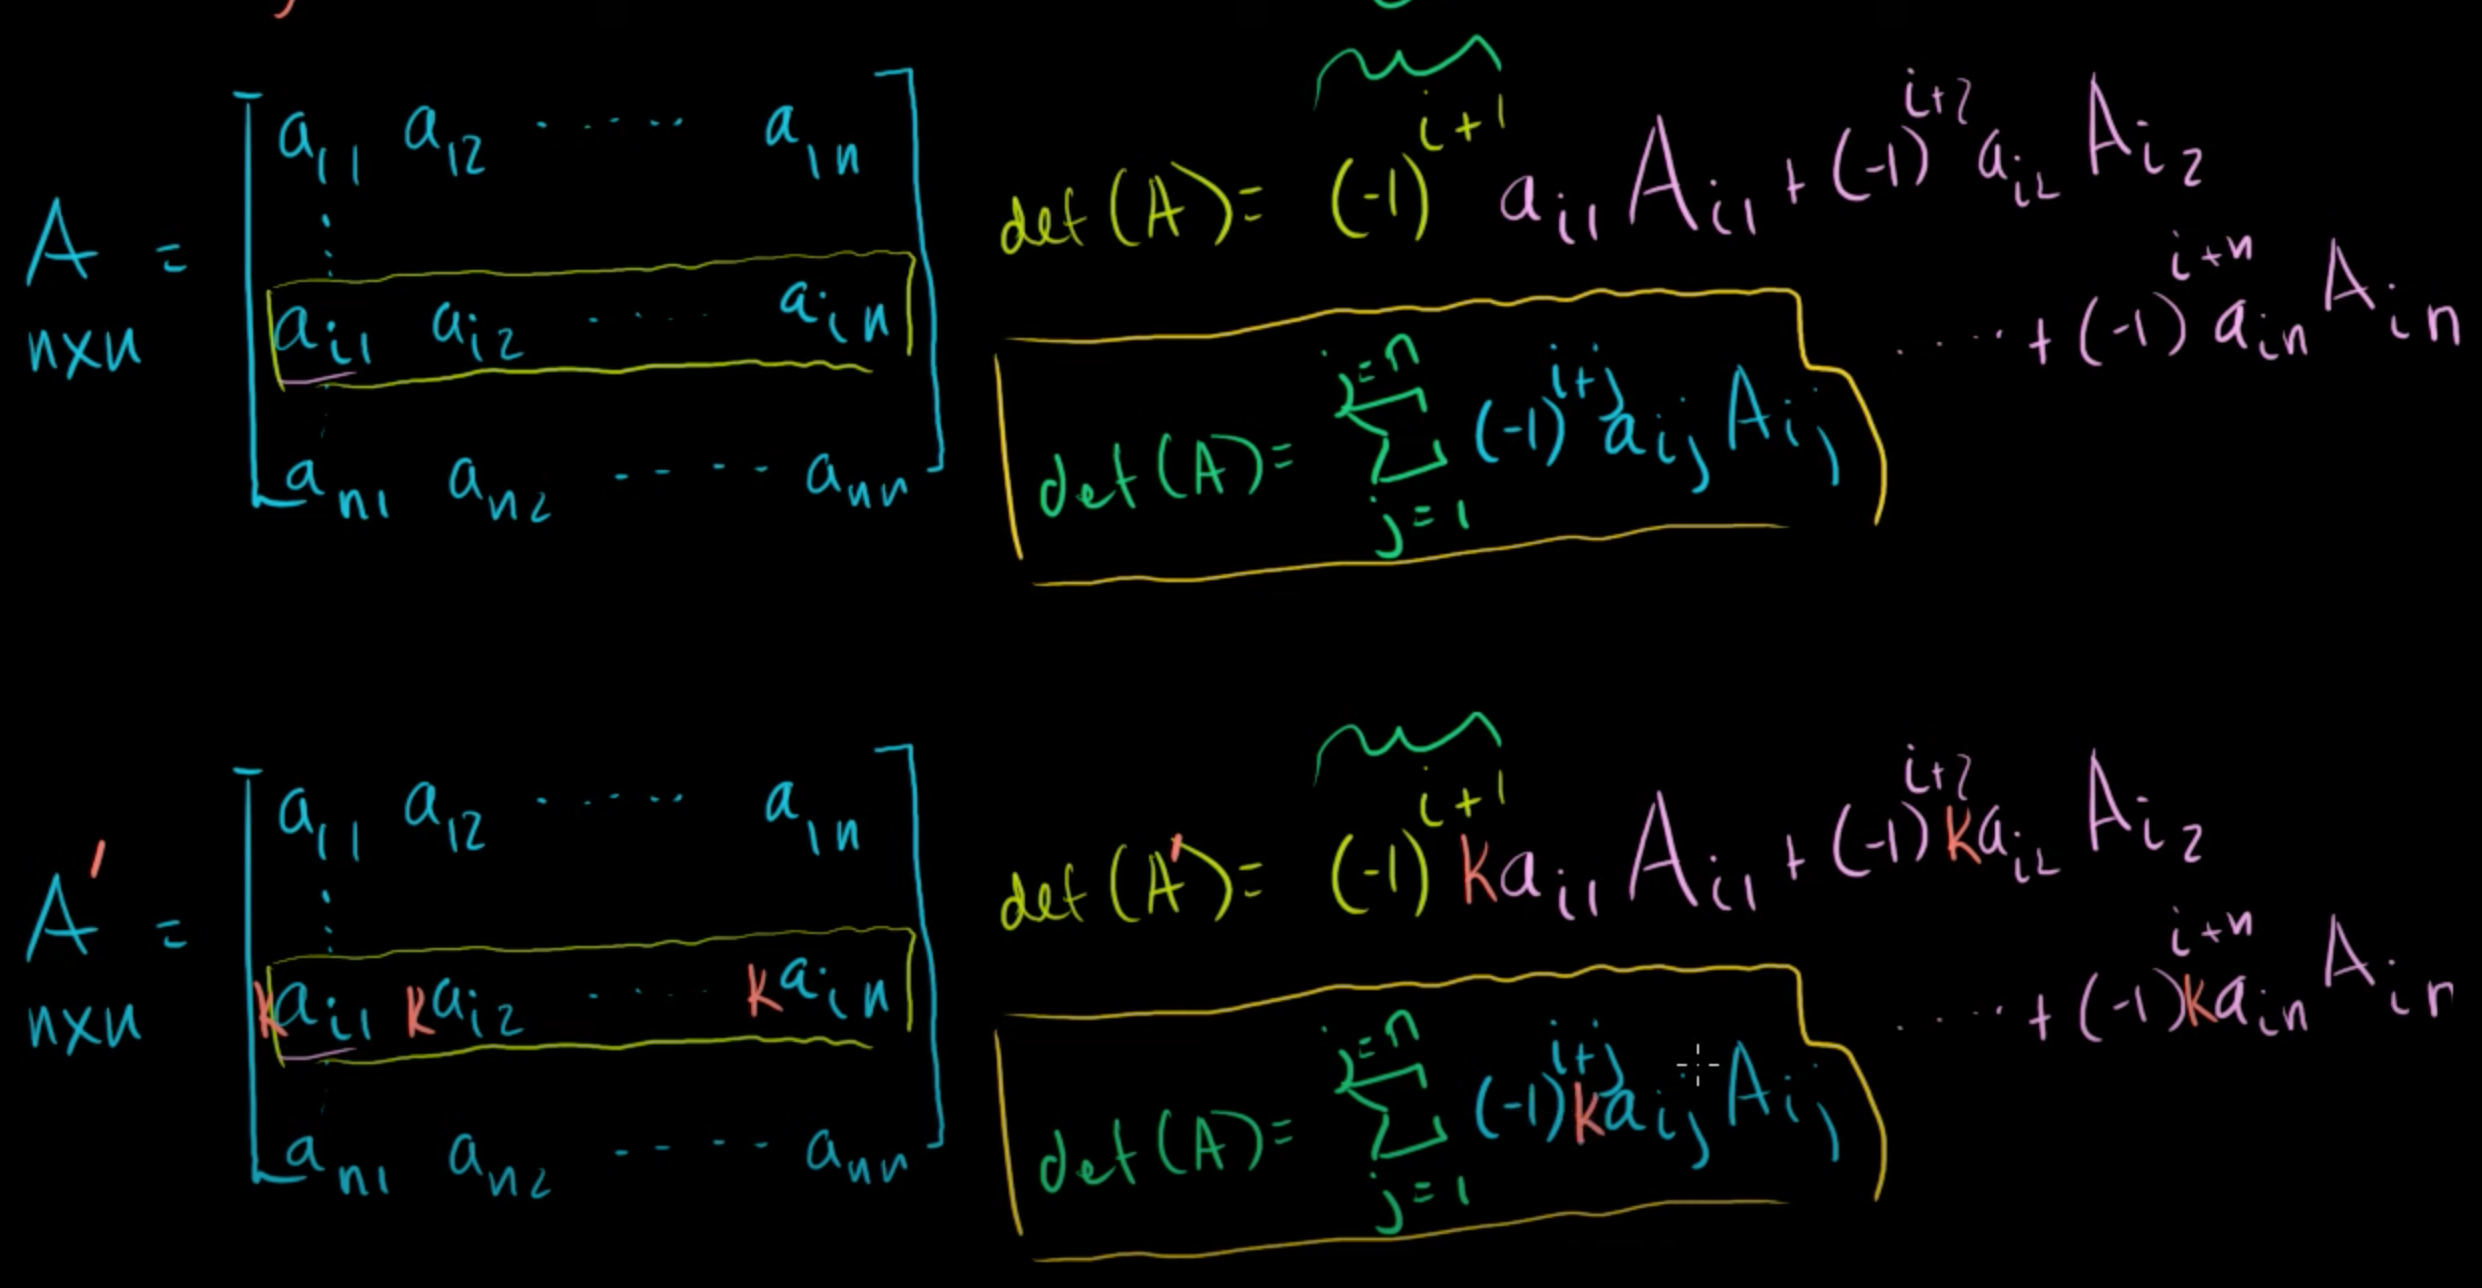 a₁₁ a₁₂ ..... a₁ₙ
A =
n×n
⋮
aᵢ₁ aᵢ₂ ..... aᵢₙ
aₙ₁ aₙ₂ ----- aₙₙ
det(A) = (-1)^{i+1} aᵢ₁ Aᵢ₁ + (-1)^{i+2} aᵢ₂ Aᵢ₂
..... + (-1)^{i+n} aᵢₙ Aᵢₙ
det(A) = Σ_{j=1}^{j=n} (-1)^{i+j} a_{ij} A_{ij}
a₁₁ a₁₂ ..... a₁ₙ
A' =
n×n
⋮
kaᵢ₁ kaᵢ₂ ..... kaᵢₙ
aₙ₁ aₙ₂ ----- aₙₙ
det(A') = (-1)^{i+1} kaᵢ₁ Aᵢ₁ + (-1)^{i+2} kaᵢ₂ Aᵢ₂
..... + (-1)^{i+n} kaᵢₙ Aᵢₙ
det(A) = Σ_{j=1}^{j=n} (-1)^{i+j} ka_{ij} A_{ij}